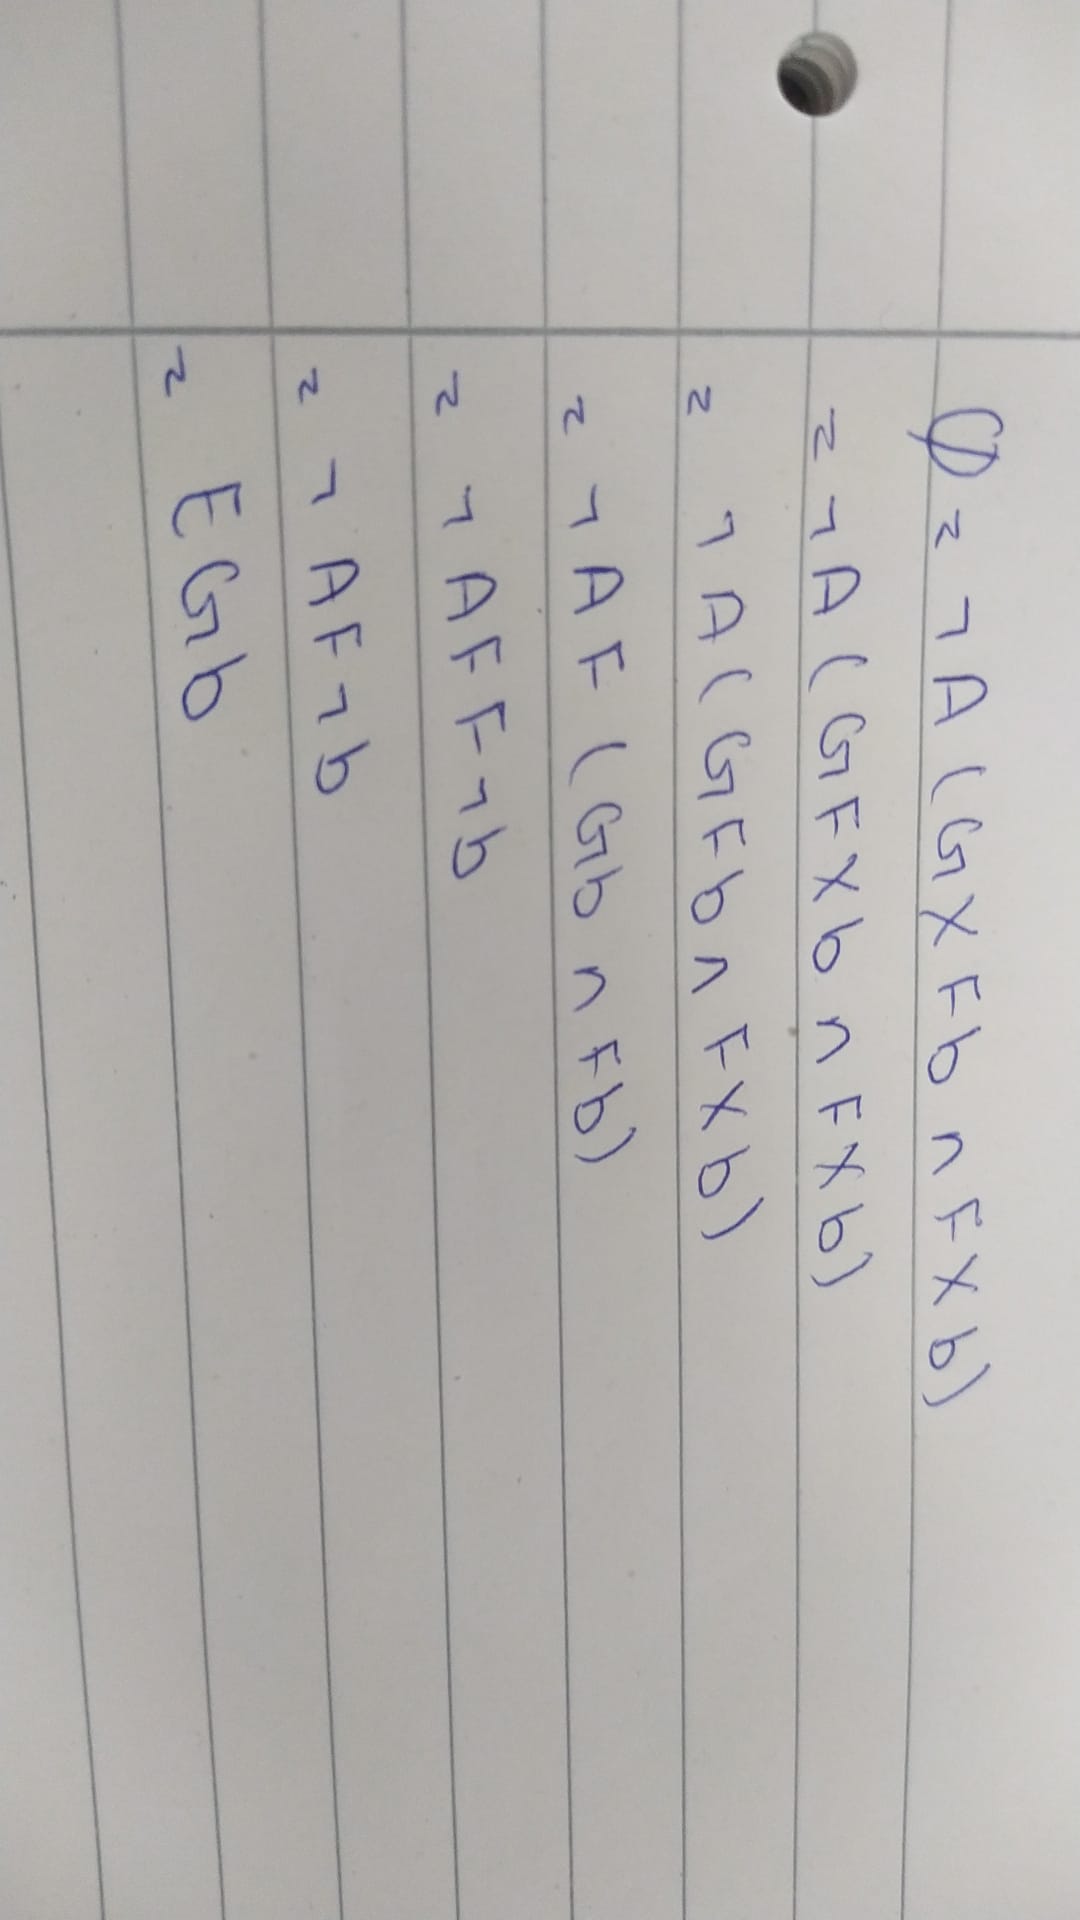 φ = ¬A(GXFb ∩ FXb)
= ¬A(GFXb ∩ FXb)
= ¬A(GFb ∧ FXb)
= ¬AF(Gb ∩ Fb)
= ¬AFF¬b
= ¬AF¬b
= EGb